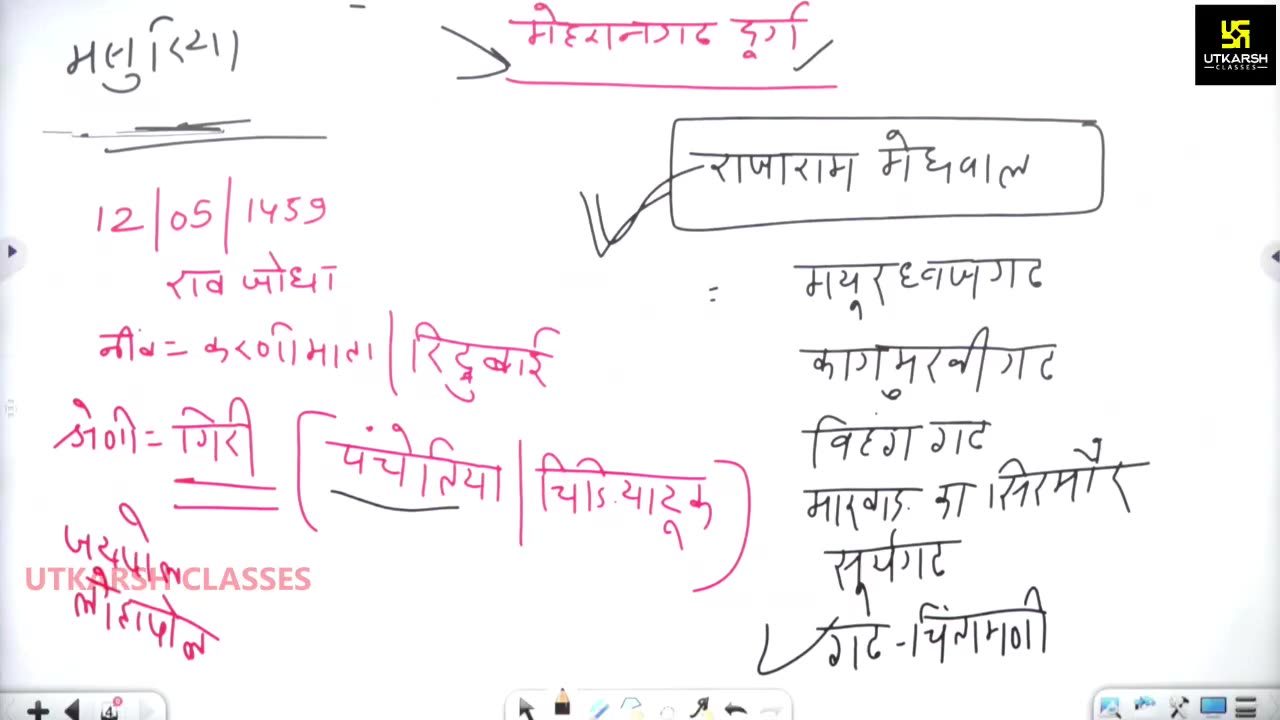 मेहरानगढ दूर्ग
UTKARSH
CLASSES
राजाराम मेघवाल
12/05/1459
राव जोधा
नींव = करणीमाता | रिद्धुबाई
श्रेणी = गिरी (पंचेतिया | चिड़ियाटूक)
जयपोल
लोहापोल
UTKARSH CLASSES
मयूरध्वजगढ
कागमुखीगढ
विहंगगढ
मारवाड़ का सिरमौर
सूर्यगढ
गढ - चिंतामणी
4